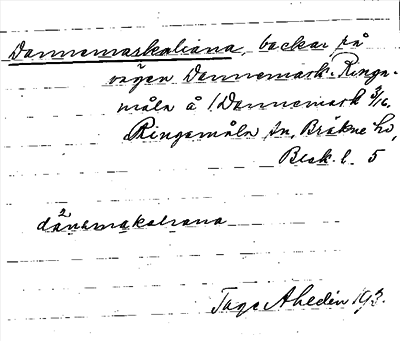 Dannemarkaliana, backar, på
vägen Dannemark - Ringa-
måla å 1 Dannemark 3/16,
Ringamåla sn, Bräkne hd,
Blek. l. 5
2
dánemakaliana
Tage Ahldén 193.